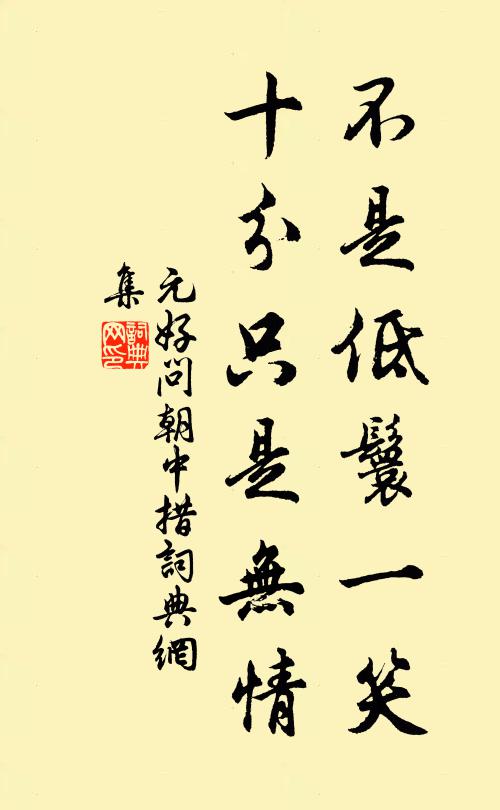 不是低鬟一笑
十分只是無情
元好問朝中措詞典網
集
詞典網印